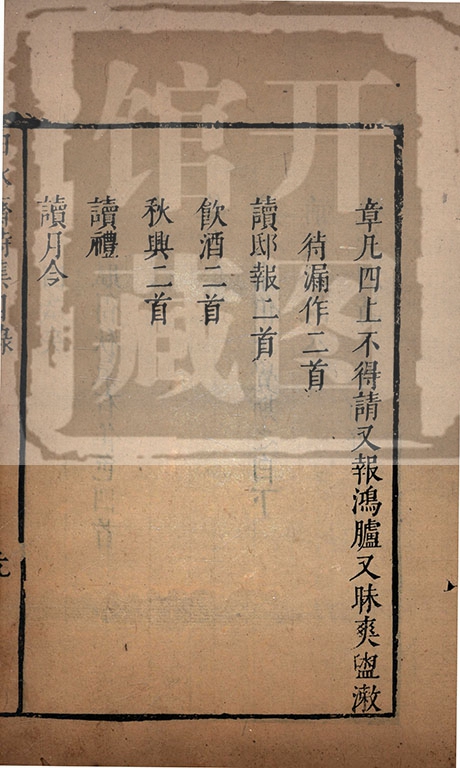 章凡四上不得請又報鴻臚又昧爽盥漱
待漏作二首
讀邸報二首
飲酒二首
秋興二首
讀禮
讀月令
齋詩集目錄
开图
馆藏